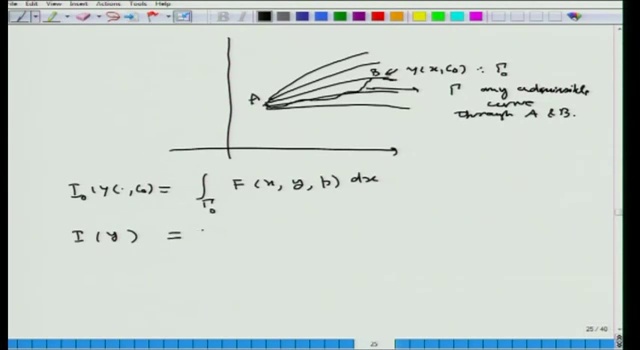 Edit View Insert Actions Tools Help
A
B
y(x, c₀) : Γ₀
Γ any admissible
curve
through A & B.
I₀(y(·, c₀) = ∫_Γ₀ F(x, y, p) dx
I(y) =
25 / 40
25